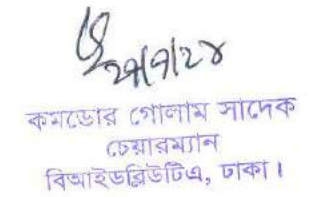 কমডোর গোলাম সাদেক
চেয়ারম্যান
বিআইডব্লিউটিএ, ঢাকা।